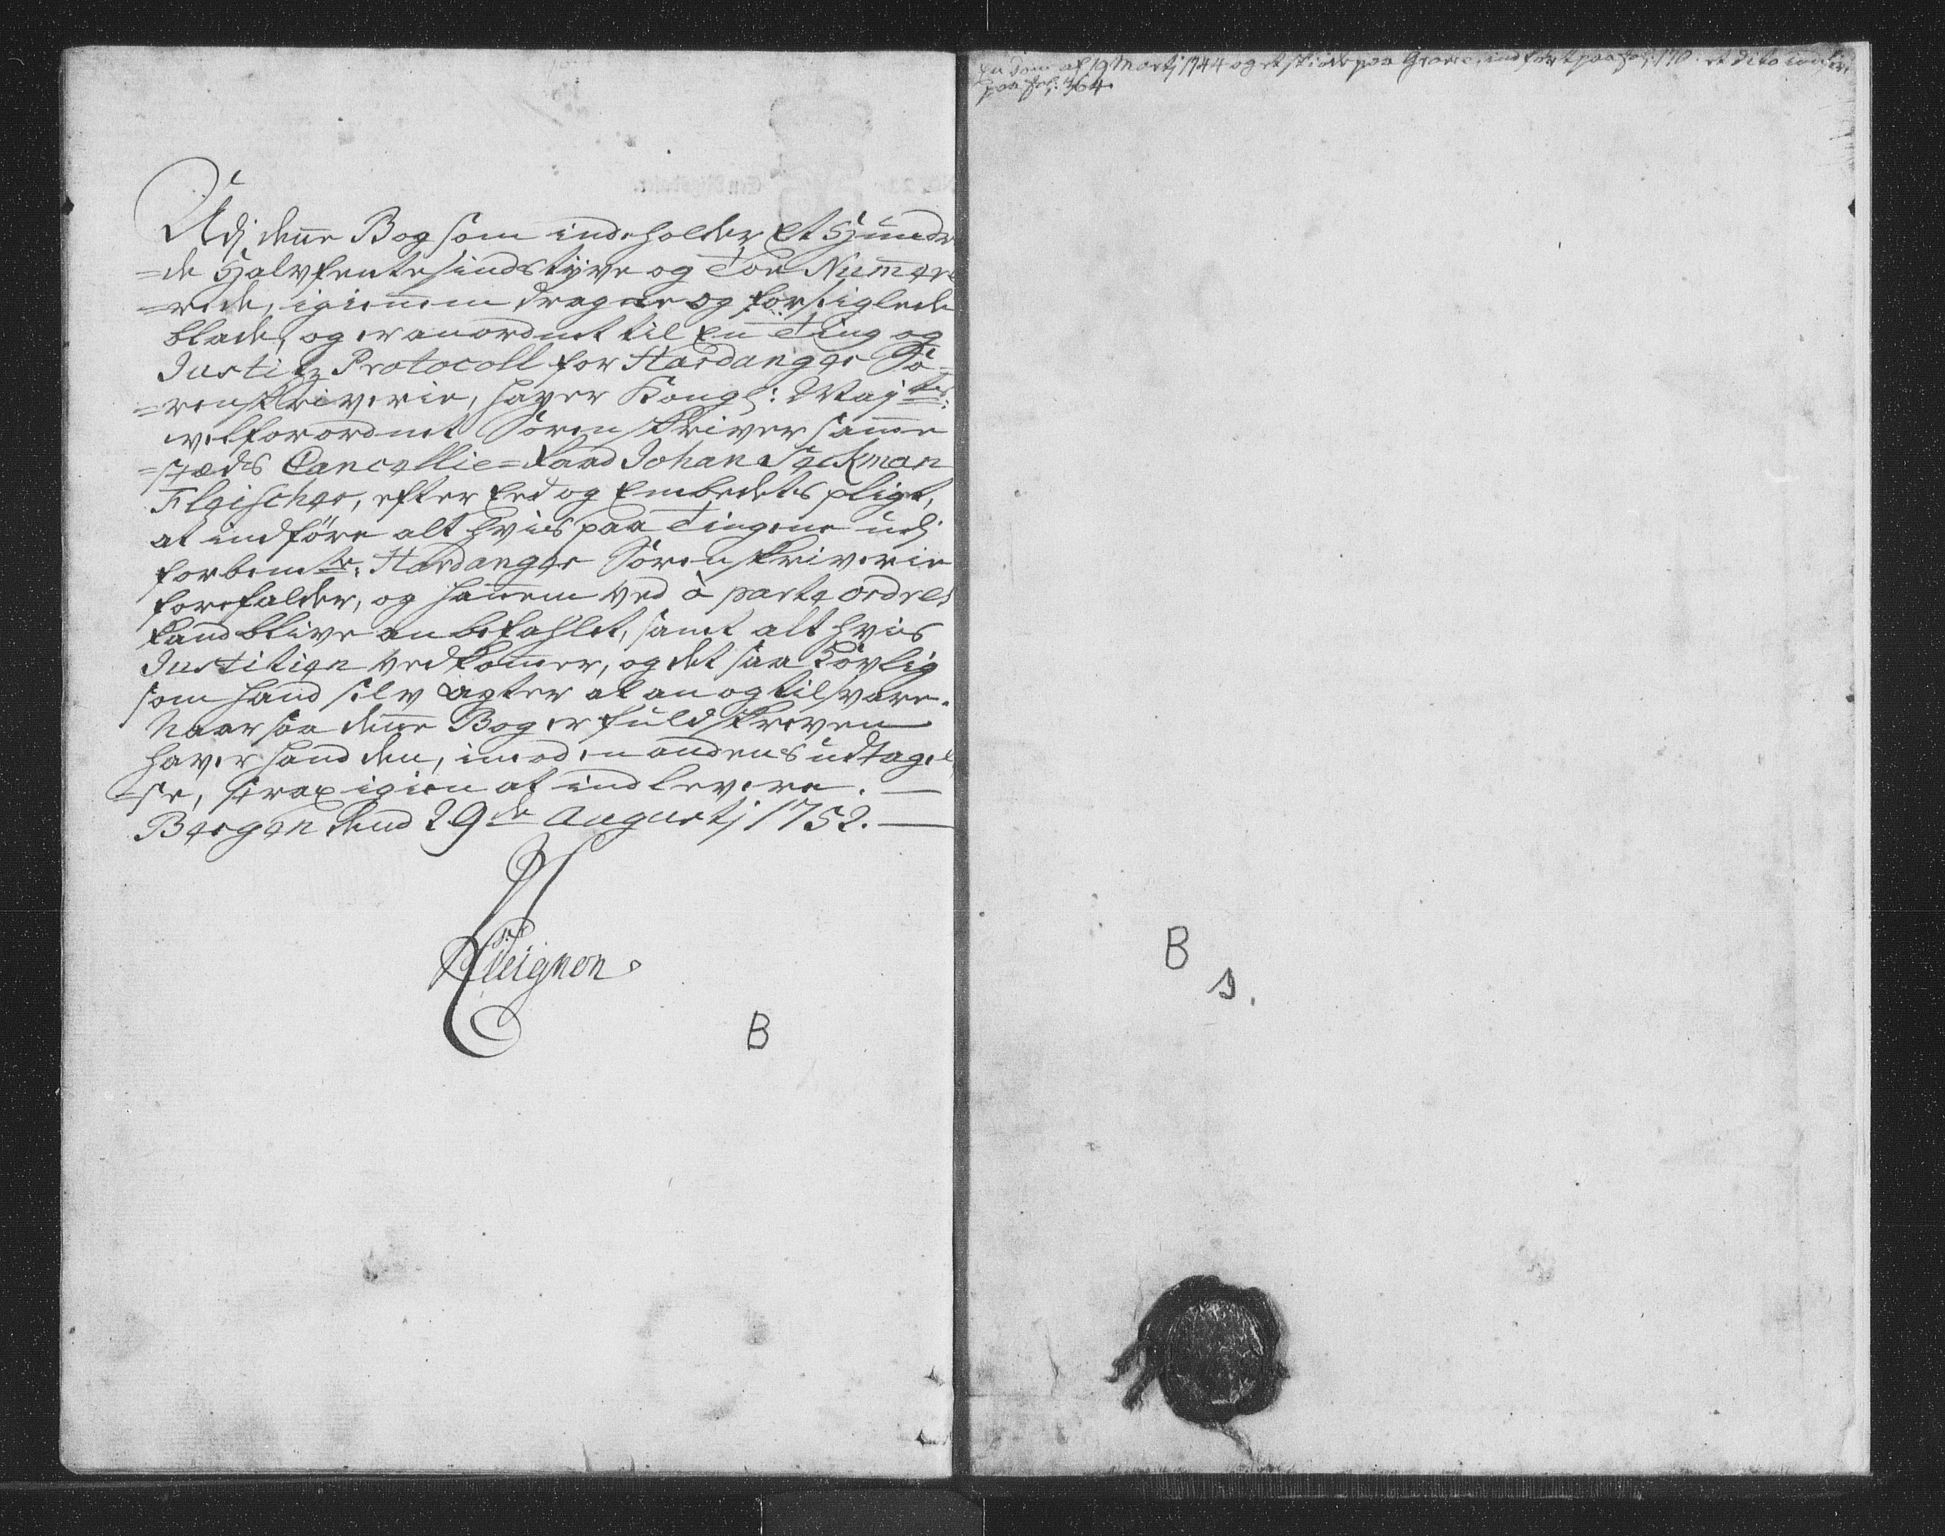 Udj denne Bog som indeholder Et Hundre
=de Halvfemtesindstyve og Toe Numere
=rede, igiennem dragne og forseiglede
blade, og er anordnet til En Ting og
Justitz Protocoll for Hardanger So=
=renskriverie, haver Kongl: Mayts:
velforordnet Sorenskriver samme
=stæds Cancellie=Raad Johan Seckman
Fleischer, efter Eed og Embedets pligt,
at indföre alt hvis paa Tingene udj
forbemte: Hardanger Sorenskriverie
forefalder, og hannem ved à parte ordres
kand blive anbefahlet, samt alt hvis
Justitien vedkommer, og det saa Lovlig
som hand selv agter at an og tilsvare.
Naar saa denne Bog er fuldskreven
haver hand den, imod en andens udtagel
=se, strax igien at indlevere. —
Bergen dend 29de Augustj 1752. —
Cicignon.
B
En dom af 19 Martj 1744 og et skiöde paa Graae, indfört paa fol: 170. et dito
paa fol: 364.
B
s.